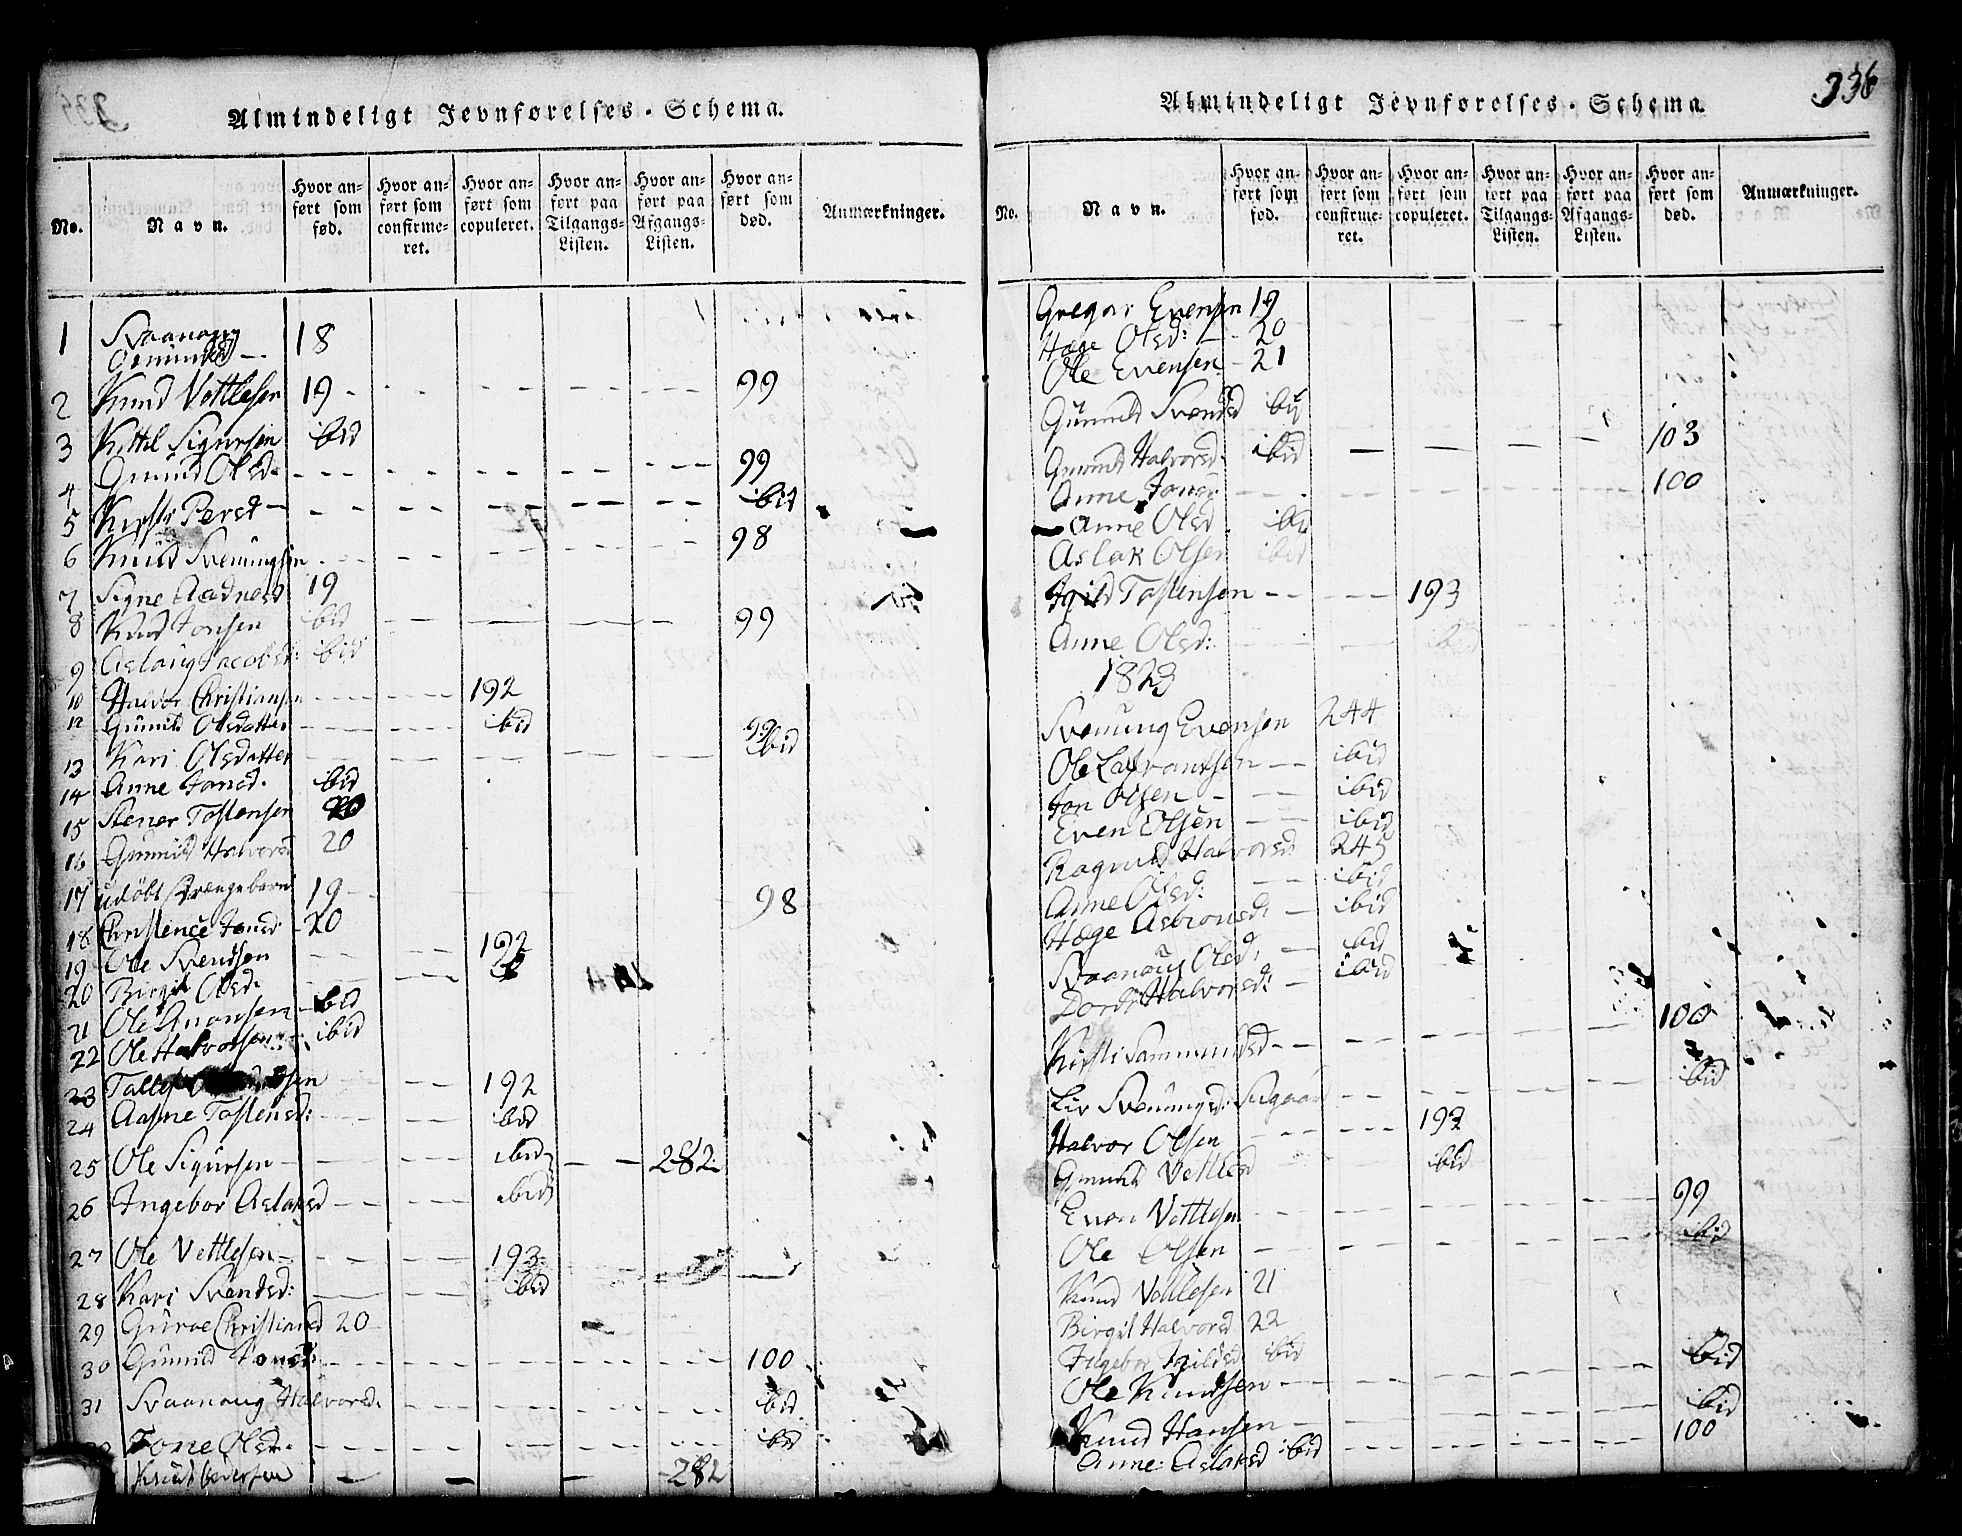 Almindeligt Jevnførelses-Schema.
No. Navn. Hvor anført som fød. Hvor anført som confirmeret. Hvor anført som copuleret. Hvor anført paa Tilgangs-Listen. Hvor anført paa Afgangs-Listen. Hvor anført som død. Anmærkninger.
1 Svaanoug
18
2 Knud Vettlesen 19 - 99
3 Kittil Sigursen ibid
4 Gunild Olsd. 99
5 Persd ibid
6 Knud Svenungsen 98
7 Signe Aadnesd 19
8 Knud Jonsen ibid 99
9 Aslaug Jacobsd: ibid
10 Halvor Christiansen 192
12 Gunild Olsdatter ibid 99
13 Kari Olsdatter ibid
14 Anne Jonsd. ibid
15 Stener Tostensen 20
16 Gunnild Halvorsd 20
17 udøbt Drengebarn 19 98
18 Christence Jonsd 20
19 Ole Svendsen 192
20 Birgit Olsd.
21 Ole Anonsen ibid
22 Ole Halvorsen ibid
23 192
24 Aasne Tostensd: ibid
25 Ole Sigursen ibid 282
26 Ingebor Aslaksd ibid
27 Ole Vettlesen 193
28 Kari Svendsd: ibid
29 Guroe Christiansd 20
30 Gunild Jonsd: 100
31 Svaanoug Halvorsd. ibid
Tone Olsd. ibid
Knud Pedersen 282
336
Almindeligt Jevnførelses-Schema
No. Navn. Hvor anført som fød. Hvor anført som confirmeret. Hvor anført som copuleret. Hvor anført paa Tilgangs-Listen. Hvor anført paa Afgangs-Listen. Hvor anført som død. Anmærkninger.
Gregar Evensen 19
Hæge Olsd: 20
Ole Evensen 21
Gunild Svendsd
Gunild Halvorsd. ibid 103
Anne Jonsd. 100
Anne Olsd. ibid
Aslak Olsen ibid
Tostensen 193
Anne Olsd: ibid
1823
Svenung Evensen 244
Ole Lafrantsen ibid
Jon Olsen ibid
Even Olsen ibid
Ragnild Halvorsd: 245
Anne Olsd: ibid
Hæge Asbionsd. ibid
Svaanoug Olsd: ibid
Halvorsd: ibid
Kirsti Sammundsd 100
Liv Svenungsd: ibid
Halvor Olsen 193
Gunnild Vettlesd ibid
Even Vettlesen 99
Ole Olsen ibid
Knud Vettlesen 21
Birgit Halvorsd 22
Ingebor ibid
Ole Knudsen ibid
Knud Hansen ibid
Anne Aslaksd ibid 100